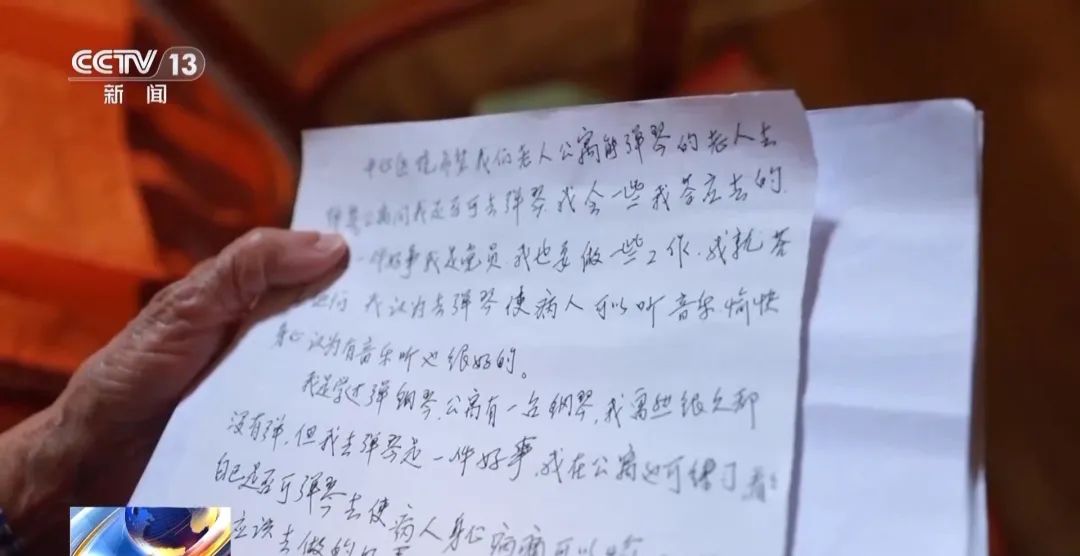 CCTV 13
新闻
中心医院希望我们老人公寓能弹琴的老人去
弹琴公寓问我是否可去弹琴,我会一些我答应去的.
一件好事我是党员.我也要做一些工作.我就答
我认为去弹琴使病人可以听音乐.愉快
身心认为有音乐听也很好的。
我是学过弹钢琴.公寓有一台钢琴,我离她很久都
没有弹.但我去弹琴是一件好事.我在公寓也可练习看看
自己是否可弹琴去使病人身心病痛可以
应该去做的